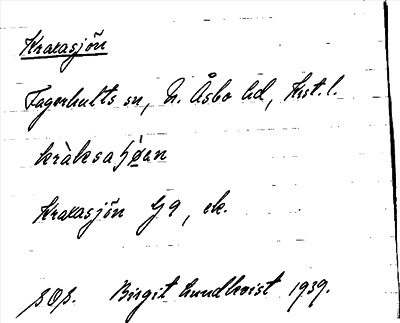 Kraxasjön
Fagerhults sn, N. Åsbo hd, Krst. l.
kràksaʃøan
Kraxasjön Gg, ek.
SOS. Birgit Lundkvist 1939.